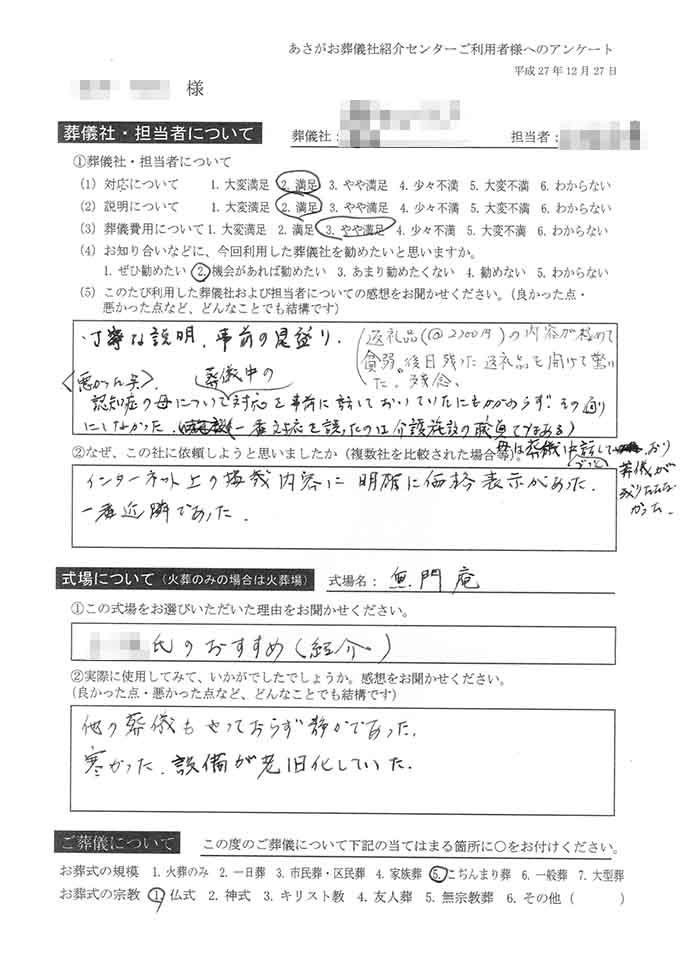 あさがお葬儀社紹介センターご利用者様へのアンケート
平成27年12月27日
様
葬儀社・担当者について 葬儀社: 担当者:
①葬儀社・担当者について
(1) 対応について 1. 大変満足 2. 満足 3. やや満足 4. 少々不満 5. 大変不満 6. わからない
(2) 説明について 1. 大変満足 2. 満足 3. やや満足 4. 少々不満 5. 大変不満 6. わからない
(3) 葬儀費用について 1. 大変満足 2. 満足 3. やや満足 4. 少々不満 5. 大変不満 6. わからない
(4) お知り合いなどに、今回利用した葬儀社を勧めたいと思いますか。
1. ぜひ勧めたい 2. 機会があれば勧めたい 3. あまり勧めたくない 4. 勧めない 5. わからない
(5) このたび利用した葬儀社および担当者についての感想をお聞かせください。(良かった点・
悪かった点など、どんなことでも結構です)
・丁寧な説明、事前の見益り、
(返礼品(@2700円)の内容が極めて
貧弱。後日残った返礼品を開けて驚い
た。残念、
〈悪かった点〉、 葬儀中の
認知症の母について対応を事前に話しておいていたにもかかわらず、その通り
にしなかった、一番対応を誤ったのは介護施設の職員である)
母は葬儀中話して おり
ずっと
葬儀が
成りたたな
かった。
②なぜ、この社に依頼しようと思いましたか(複数社を比較された場合等)。
インターネット上の掲載内容に明確に価格表示があった。
一番近隣であった。
式場について(火葬のみの場合は火葬場) 式場名: 無門庵
①この式場をお選びいただいた理由をお聞かせください。
氏のおすすめ(紹介)
②実際に使用してみて、いかがでしたでしょうか。感想をお聞かせください。
(良かった点・悪かった点など、どんなことでも結構です)
他の葬儀もやっておらず静かであった。
寒かった、設備が老旧化していた。
ご葬儀について この度のご葬儀について下記の当てはまる箇所に○をお付けください。
お葬式の規模 1. 火葬のみ 2. 一日葬 3. 市民葬・区民葬 4. 家族葬 5. こぢんまり葬 6. 一般葬 7. 大型葬
お葬式の宗教 1. 仏式 2. 神式 3. キリスト教 4. 友人葬 5. 無宗教葬 6. その他( )